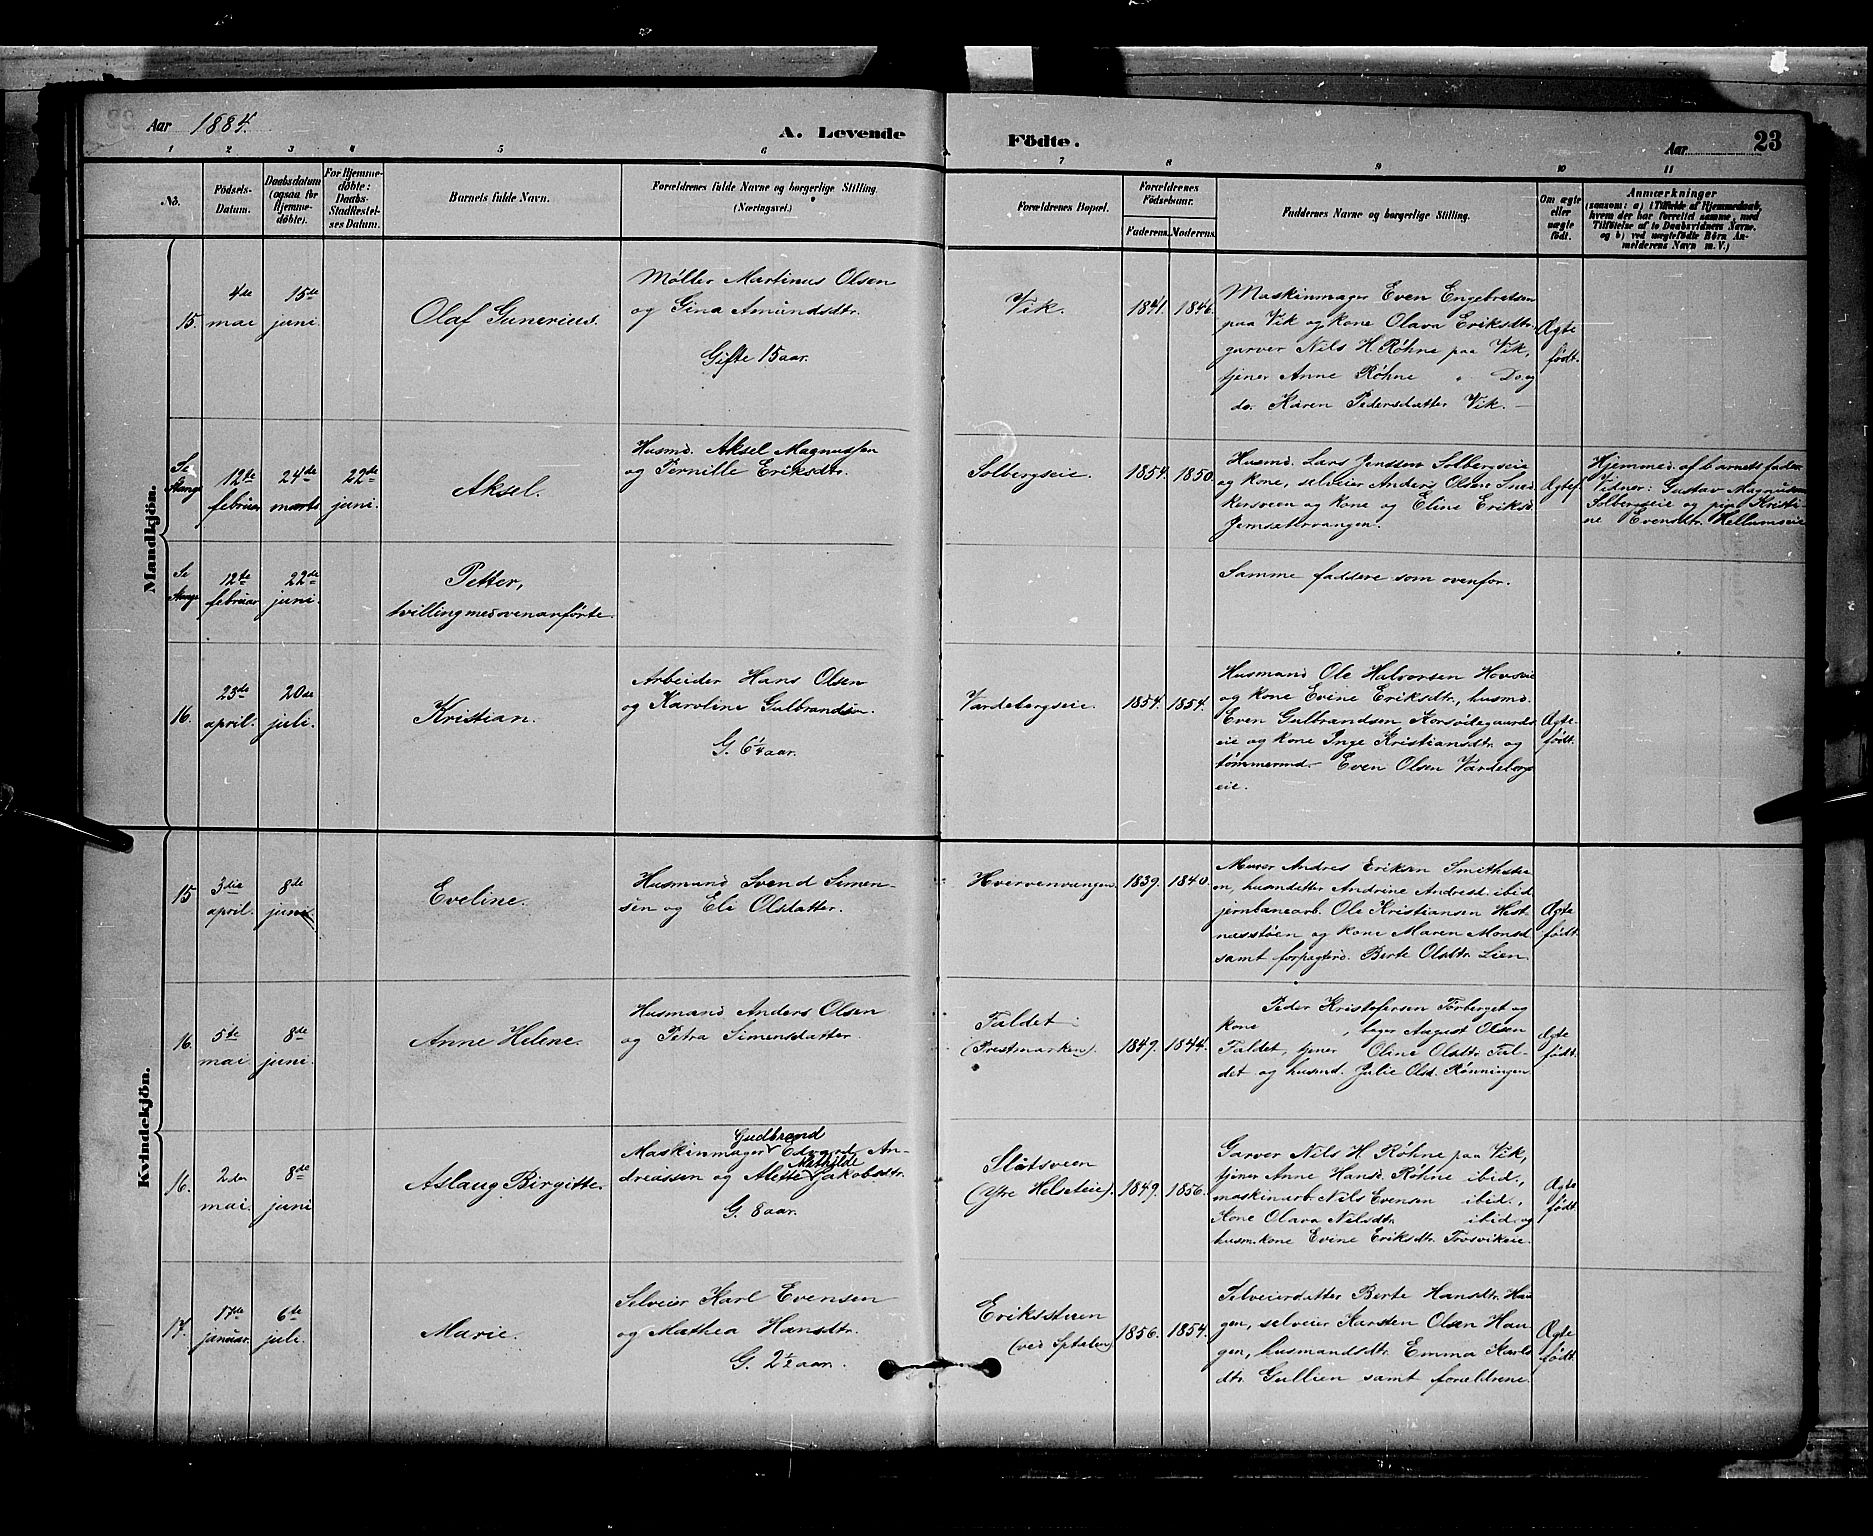 Aar 1884.
A. Levende
Födte.
Aar
23
1 2 3 4 5 6 7 8 9 10 11
No.
Födsels-
Datum.
Daabsdatum
(ogsaa for
Hjemme-
døbte).
For Hjemme-
døbte:
Daabs-
Stadfæstel-
ses Datum.
Barnets fulde Navn.
Forældrenes fulde Navne og borgerlige Stilling.
(Næringsvei.)
Forældrenes Bopæl.
Forældrenes
Födselsaar.
Faderens. Moderens.
Faddernes Navne og borgerlige Stilling.
Om ægte
eller
uægte
født.
Anmærkninger
(saasom: a) i Tilfælde af Hjemmedaab,
hvem der har forrettet samme, med
Tilføielse af to Daabsvidners Navne.
og b) ved uægtefødte Börn An-
melderens Navn m. V.)
Mandkjön.
15.
4de
mai
15de
juni.
Olaf Gunerius.
Møller Martinus Olsen
og Gina Amundsdtr.
Gifte 15 aar.
Vik.
1841. 1846.
Maskinmager Even Engebretsen
paa Vik og kone Olava Eriksdtr.
garver Nils H. Røhne paa Vik,
tjener Anne Røhne " Do. og
do. Karen Pedersdatter Vik.
Ægte
født.
Se
Stange
12te
februar
24de
marts
22de
juni.
Aksel.
Husmd. Aksel Magnussen
og Pernille Eriksdtr.
Solbergseie.
1854. 1850.
Husmd. Lars Jensen Solbergseie
og kone, selveier Anders Olsen Sned-
kersveen og kone og Eline Eriksd.
Jernsættervangen.
Ægtef.
Hjemmed. af barnets fader.
Vidner: Gustav Magnussen
Solbergseie og pige Kristi-
ne Evensdtr. Hellumseie
Se
Stange
12te
februar
22de
juni.
Petter,
tvilling med ovenanførte.
Samme faddere som ovenfor.
16.
23de
april.
20de
juli.
Kristian.
Arbeider Hans Olsen
og Karoline Gulbrandsen.
G. 6¼ aar.
Vardebergseie.
1854. 1854.
Husmand Ole Halvorsen Hovseie
og kone Evine Eriksdtr., husmd.
Even Gulbrandsen Korsødegaards
eie og kone Inge Kristiansdtr. og
tømmermd. Even Olsen Vardebergs
eie.
Ægte
født.
Kvindekjön.
15
3die
april.
8de
juni.
Eveline.
Husmand Svend Simen-
sen og Eli Olsdatter.
Hvervenvangen.
1839. 1840.
Murer Andres Eriksen Smithste-
en, husmdatter Andrine Andresd. ibid
jernbanearb. Ole Kristiansen Hest
næsstøen og kone Maren Monsd.
samt forpagterd. Berte Olsdtr. Lien.
Ægte
født.
16.
5te
mai.
8de
juni.
Anne Helene.
Husmand Anders Olsen
og Petra Simensdatter.
Faldet
(Prestmarken).
1849. 1844.
Peder Kristofersen Torberget og
kone , bager August Olsen
Faldet, tjener Oline Olsdtr. Fal-
det og husmd. Julie Olsd. Rønningen
Ægte
født.
16.
2den
mai.
8de
juni
Aslaug Birgitte.
Gudbrand
Maskinmager Edvard An-
Mathilde
dreassen og Alette Jakobsdtr.
G. 8 aar.
Slåtsveen
(Ytre Helseteie).
1849. 1856.
Garver Nils H Røhne paa Vik,
tjener Anne Hansd. Røhne ibid.,
maskinarb. Nils Evensen ibid.,
kone Olava Nilsdtr. ibid. og
husm.kone Evine Eriksdtr. Trosvikeie.
Ægte
født.
17.
17de
januar.
6te
juli.
Marie.
Selveier Karl Evensen
og Mathea Hansdtr.
G. 2½ aar.
Eriksstuen
(ved Sptalen)
1856. 1854.
Selveierdatter Berte Hansdtr. Hau
gen, selveier Karsten Olsen Hau-
gen, husmandsdtr. Emma Karls
dtr. Gullien samt forældrene.
Ægte
født.